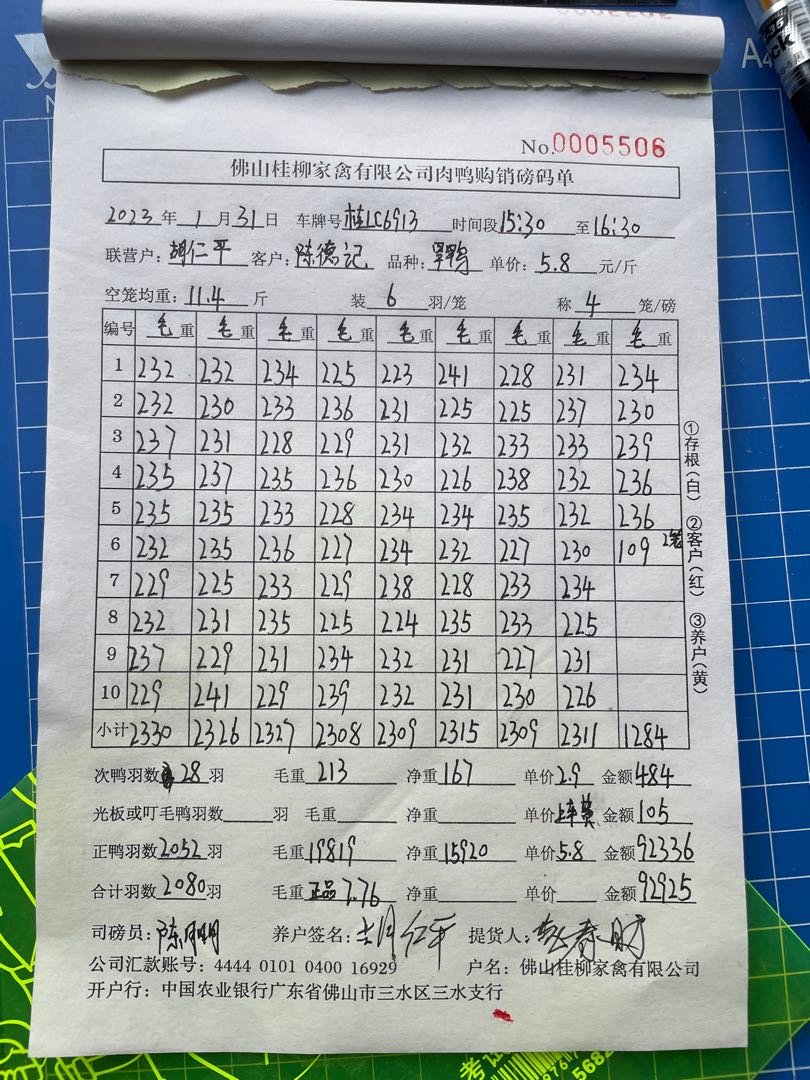 No.0005506
佛山桂柳家禽有限公司肉鸭购销磅码单
2023年 1月31日 车牌号桂LC6913 时间段15:30至16:30
联营户：胡仁平 客户：陈德记 品种：罗鸭 单价：5.8元/斤
空笼均重：11.4斤 装6羽/笼 称4笼/磅
编号 毛重 毛重 毛重 毛重 毛重 毛重 毛重 毛重 毛重
1 232 232 234 225 223 241 228 231 234
2 232 230 233 236 231 225 225 237 230
3 237 231 228 229 231 232 233 233 239
4 235 237 235 236 230 226 238 232 236
5 235 235 233 228 234 234 235 232 236
6 232 235 236 227 234 232 227 230 109 2笼
7 229 225 233 229 238 228 233 234
8 232 231 235 225 224 235 233 225
9 237 229 231 234 232 231 227 231
10 229 241 229 239 232 231 230 226
小计 2330 2326 2327 2308 2309 2315 2309 2311 1284
①存根（白） ②客户（红） ③养户（黄）
次鸭羽数28羽 毛重213 净重167 单价2.9 金额484
光板或叮毛鸭羽数 羽 毛重 净重 单价上车费 金额105
正鸭羽数2052羽 毛重19819 净重15920 单价5.8 金额92336
合计羽数2080羽 毛重正品7.76 净重 单价 金额92925
司磅员：陈朋明 养户签名：胡仁平 提货人：
公司汇款账号：4444 0101 0400 16929 户名：佛山桂柳家禽有限公司
开户行：中国农业银行广东省佛山市三水区三水支行